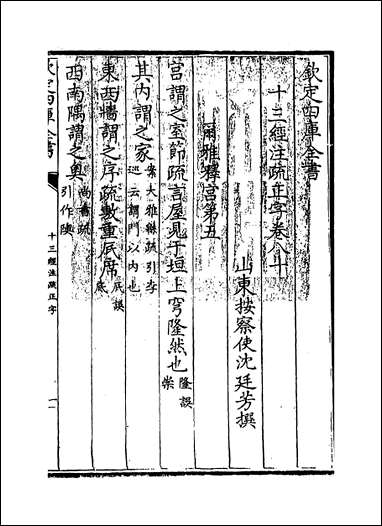 欽定四庫全書
十三經注疏正字卷八十
山東按察使沈廷芳撰
爾雅釋宮第五
宮謂之室節疏言屋見于垣上穹隆然也隆誤崇
其內謂之家案大雅緜疏引李巡云謂門以內也
東西牆謂之序疏敷重厎席厎誤底
西南隅謂之奧尚書疏引作隩
欽定四庫全書
十三經注疏正字
一